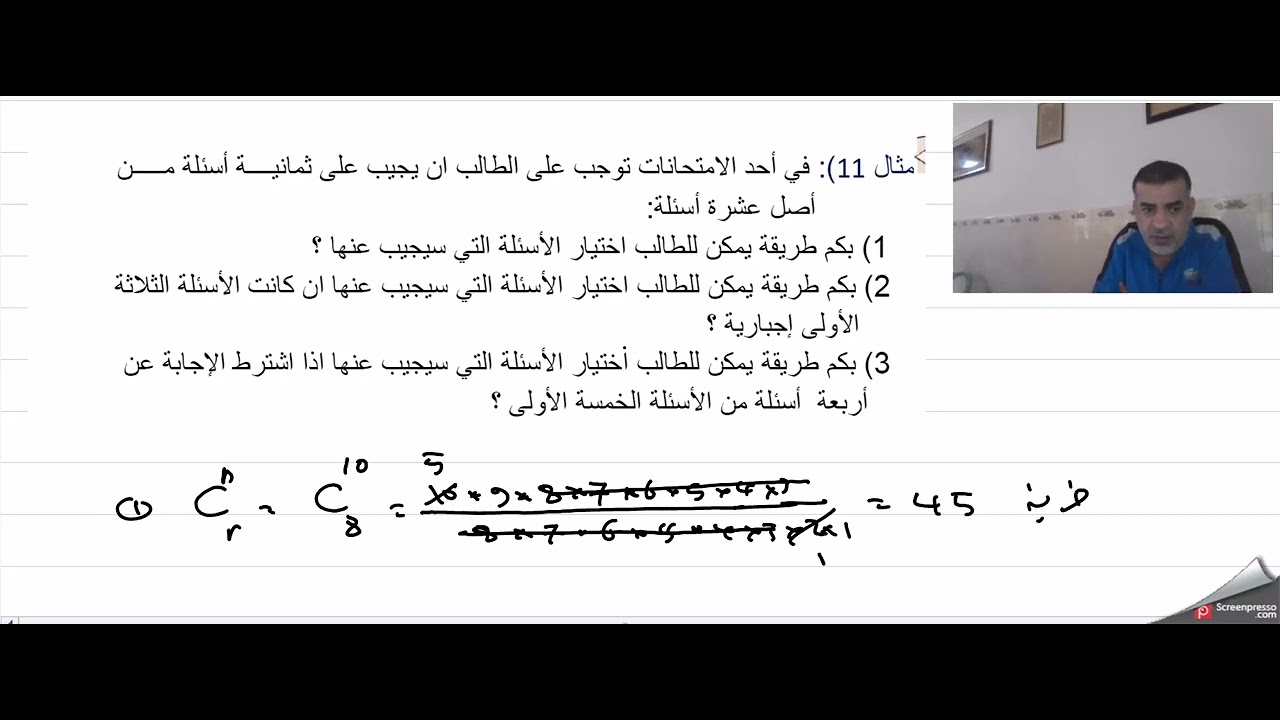 مثال 11): في أحد الامتحانات توجب على الطالب ان يجيب على ثمانيـــة أسئلة مـــن
أصل عشرة أسئلة:
1) بكم طريقة يمكن للطالب اختيار الأسئلة التي سيجيب عنها ؟
2) بكم طريقة يمكن للطالب اختيار الأسئلة التي سيجيب عنها ان كانت الأسئلة الثلاثة
الأولى إجبارية ؟
3) بكم طريقة يمكن للطالب أختيار الأسئلة التي سيجيب عنها اذا اشترط الإجابة عن
أربعة أسئلة من الأسئلة الخمسة الأولى ؟
5
① C n r = C 10 8 = 10 × 9 × 8 × 7 × 6 × 5 × 4 × 3 / 8 × 7 × 6 × 5 × 4 × 3 × 2 × 1 = 45
1
Screenpresso
.com